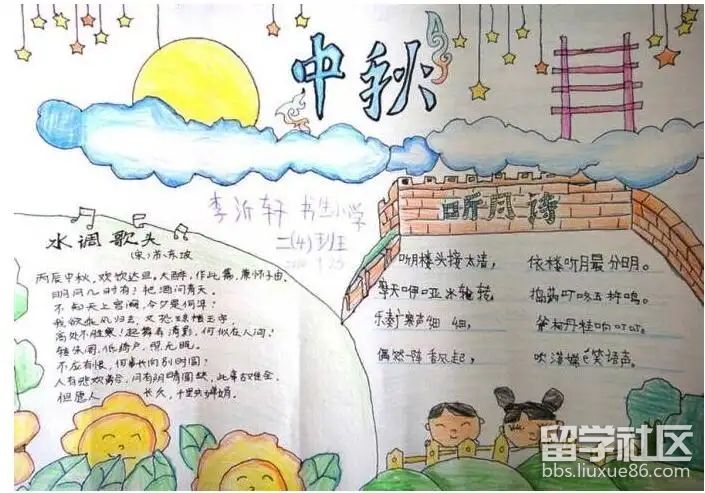 中秋
李沂轩 书生小学
二(4)班
水调歌头
(宋)苏东坡
丙辰中秋,欢饮达旦,大醉,作此篇,兼怀子由。
明月几时有?把酒问青天。
不知天上宫阙,今夕是何年?
我欲乘风归去,又恐琼楼玉宇,
高处不胜寒!起舞弄清影,何似在人间!
转朱阁,低绮户,照无眠。
不应有恨,何事长向别时圆?
人有悲欢离合,月有阴晴圆缺,此事古难全。
但愿人 长久,千里共婵娟。
听月诗
听月楼头接太清, 依楼听月最分明。
摩天咿哑冰轮转, 捣药叮咚玉杵鸣。
乐奏广寒声细 细, 斧柯丹桂响叮叮。
偶然一阵香风起, 吹落嫦娥笑语声。
留学社区
bbs.liuxue86.com